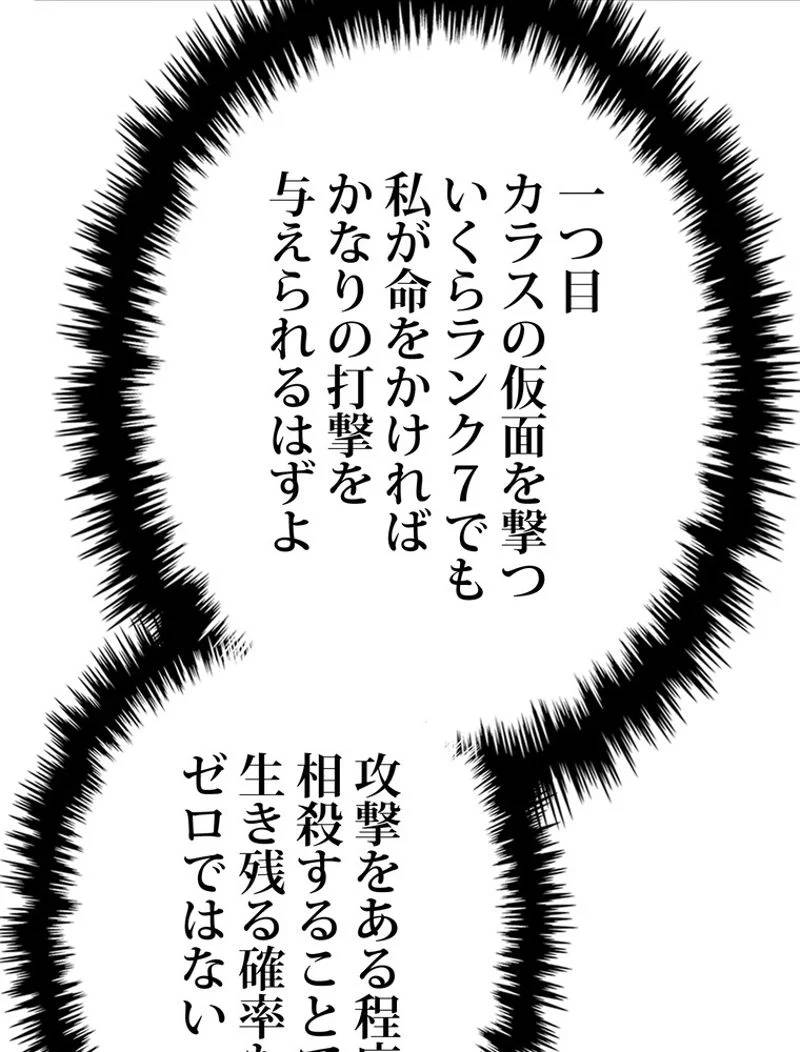 一つ目
カラスの仮面を撃つ
いくらランク7でも
私が命をかければ
かなりの打撃を
与えられるはずよ
攻撃をある程
相殺すること
生き残る確率
ゼロではない